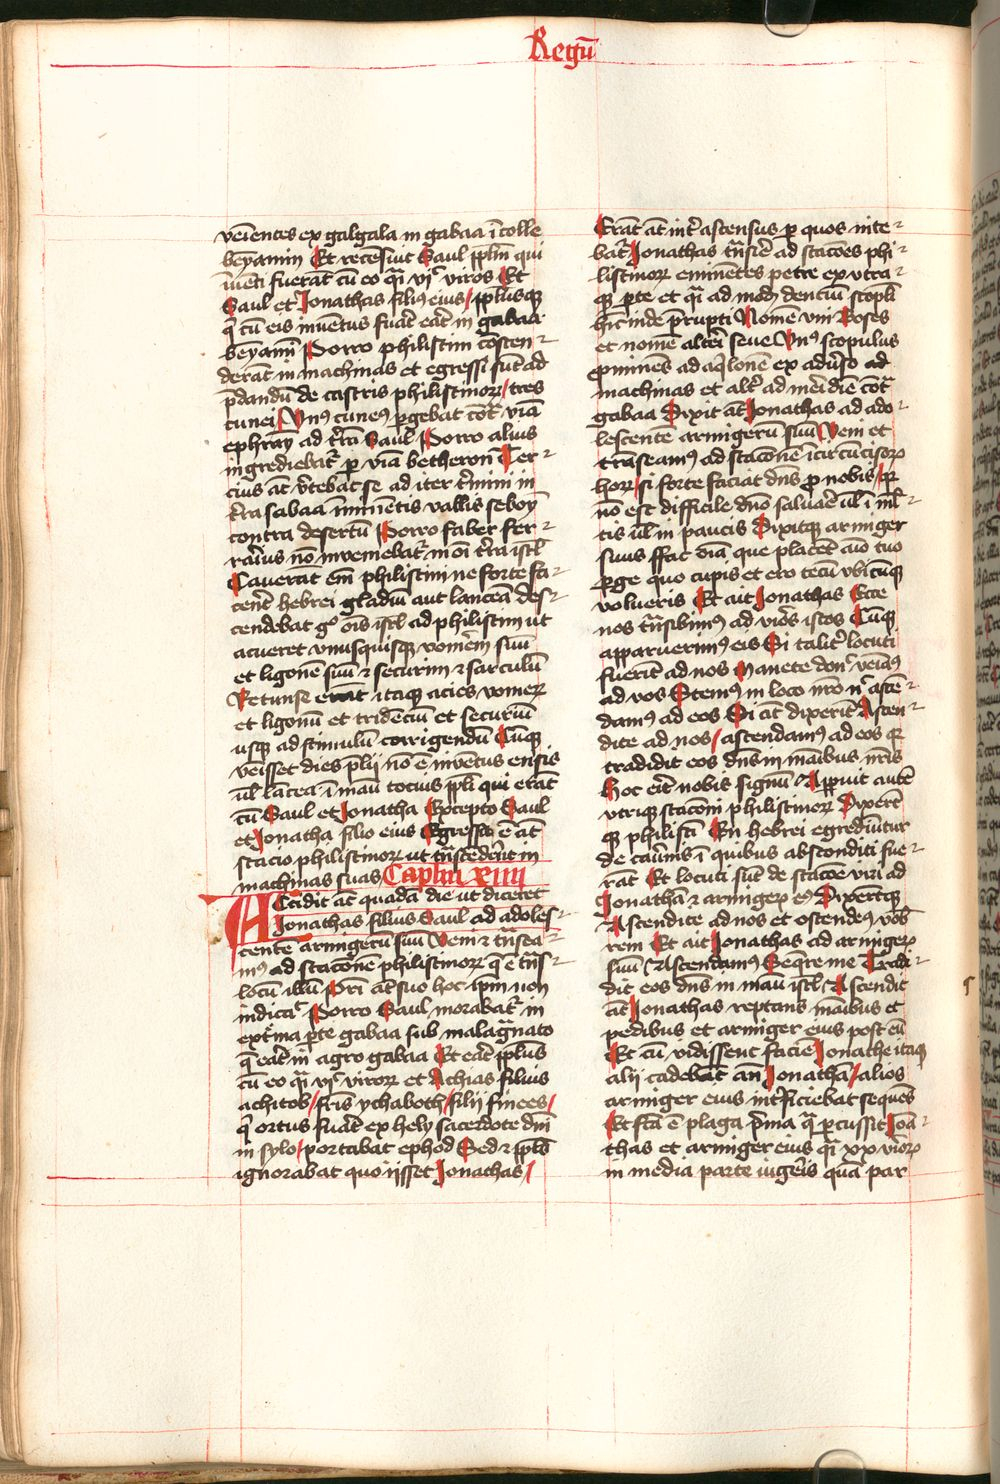 Regū
veīentes ex galgala in gabaa ī colle
beyamin Et recēsuit Saul pplm̄ qui
īuēti fuerāt cū eo qͣi viͨ viros Et
Saul et Jonathas filiꝰ eius / pplusqꝫ
q̄ cū eis inuentus fuāt erāt in gabaa
beyamī Porro philistiim cōsten
derāt in machinas et egressi sūt ad
p̄dandū de castris philistinoꝝ / tres
cunei / Vnꝰ cuneꝰ ꝑgebat cōtͣ viā
ephraȳ ad t̄rā Saul Porro alius
ingrediebatͬ ꝑ viā betheron Ter
cius āt v̄tebat se ad iter t̄mini in
t̄ra sabaa īminētis vallis seboȳ
contra desertū Porro faber fer
rarius nō inveniebatͬ in oī t̄ra isr̄l
Cauerāt em̄ philistini ne forte fa
cerēt hebrei gladiū aut lanceā des
cendebat gͦ oīs isr̄l ad philistiim ut
acueret vnusquisqꝫ vomerē suū
et ligonē suū ⁊ securim ⁊ sarculū
Retunse erāt itaqꝫ acies vomeꝝ
et ligonū et tridēciū et securiū
usqꝫ ad stimulū corrigendū Cūqꝫ
venisset dies p̄lij nō ē invētus ensis
ūl lācea ī manū tocius ppl̄i qui erāt
cū Saul et Jonatha Excepto Saul
et Jonatha filio eius Egressa ē āt
stacio philistinoꝝ ut tn̄scēderēt in
machinas suas Caplm̄ xiiii
Accidit āt quadā die ut diceret
Jonathas filius Saul ad adoles
centē armigerū suū Veni ⁊ tn̄sea
mꝰ ad stacōnē philistinoꝝ q̄ ē tn̄s
locū illū Pri āt suo hoc ip̄m non
indicaͨ Porro Saul morabatͬ in
extͤma ꝑte gabaa sub malagnato
q̄ erāt in agro gabaa Et erāt pplus
cū eo qͣi viͨ viroꝝ et Achias filius
achitob / fr̄is ychaboth / filij finees /
q̄ ortus fuāt ex hely sacerdote dn̄i
in sylo / portabat ephod Sed ⁊ ppl̄s
ignorabat quo ijsset Jonathas /
Erāt āt int̄ ascensus ꝑ quos nite
batͬ Jonathas tn̄sire ad stacōes phi
listinoꝝ eminētes petre ex vtra
qꝫ ꝑte et qͣi ad modū denciū scopl̄i
hīc inde p̄rupti Nomē vni Boses
et nomē altēi seue Vnꝰ scopulus
ꝓminēs ad aq̄lonē ex adūso ad
machinas et altͬ ad meridiē cōtͣ
gabaa Dixit āt Jonathas ad ado
lescentē armigerū suū Veni et
trāseamꝰ ad stacōnē īcircūcisoꝝ
hoꝝ / si forte faciat dn̄s ꝓ nobis / qꝛ
nō est difficile dn̄o saluare ūl ī ml̄
tis ūl in paucis Dixitqꝫ armiger
suus ffac oīa que placēt aīo tuo
ꝑge quo cupis et ero tecū vbicūqꝫ
volueris Et ait Jonathas Ecce
nos tn̄sibimꝰ ad viros istos Cūqꝫ
apparuerimꝰ eis Si talitͬ locuti
fuerīt ad nos Manete donͨ veiamꝰ
ad vos Stemꝰ in loco nr̄o nͨ ascē
damꝰ ad eos Si āt dixerīt Ascen
dite ad nos / ascendamꝰ ad eos qꝛ
tradidit eos dn̄s in manibus nr̄is
Hoc erit nobis signū Appuit autē
vterqꝫ stacōni philistinoꝝ Dixerūt
qꝫ philisti En hebrei egrediūtur
de cauernis ī quibus absconditi fue
rāt Et locuti sūt de stacōe viri ad
Jonathā ⁊ armigeꝝ eꝰ Dixerūtqꝫ
Ascendite ad nos et ostendemꝰ vob̄
rem Et ait Jonathas ad armigeꝝ
suū Ascendamꝰ Seqre me Tradi
dit eos dn̄s in manū isr̄l Ascendit
āt Jonathas reptans manibus et
pedibus et armiger eius post eū
Et cū vidissent faciē Jonathe itaqꝫ
alij cadebāt an̄ Jonathā / alios
armiger eius int̄ficiebat sequēs
Et fc̄a ē plaga p̄ma qͣ ꝑcussit Jona
thas et armiger eius qͣi xx viroꝝ
in media parte iugeris quā par